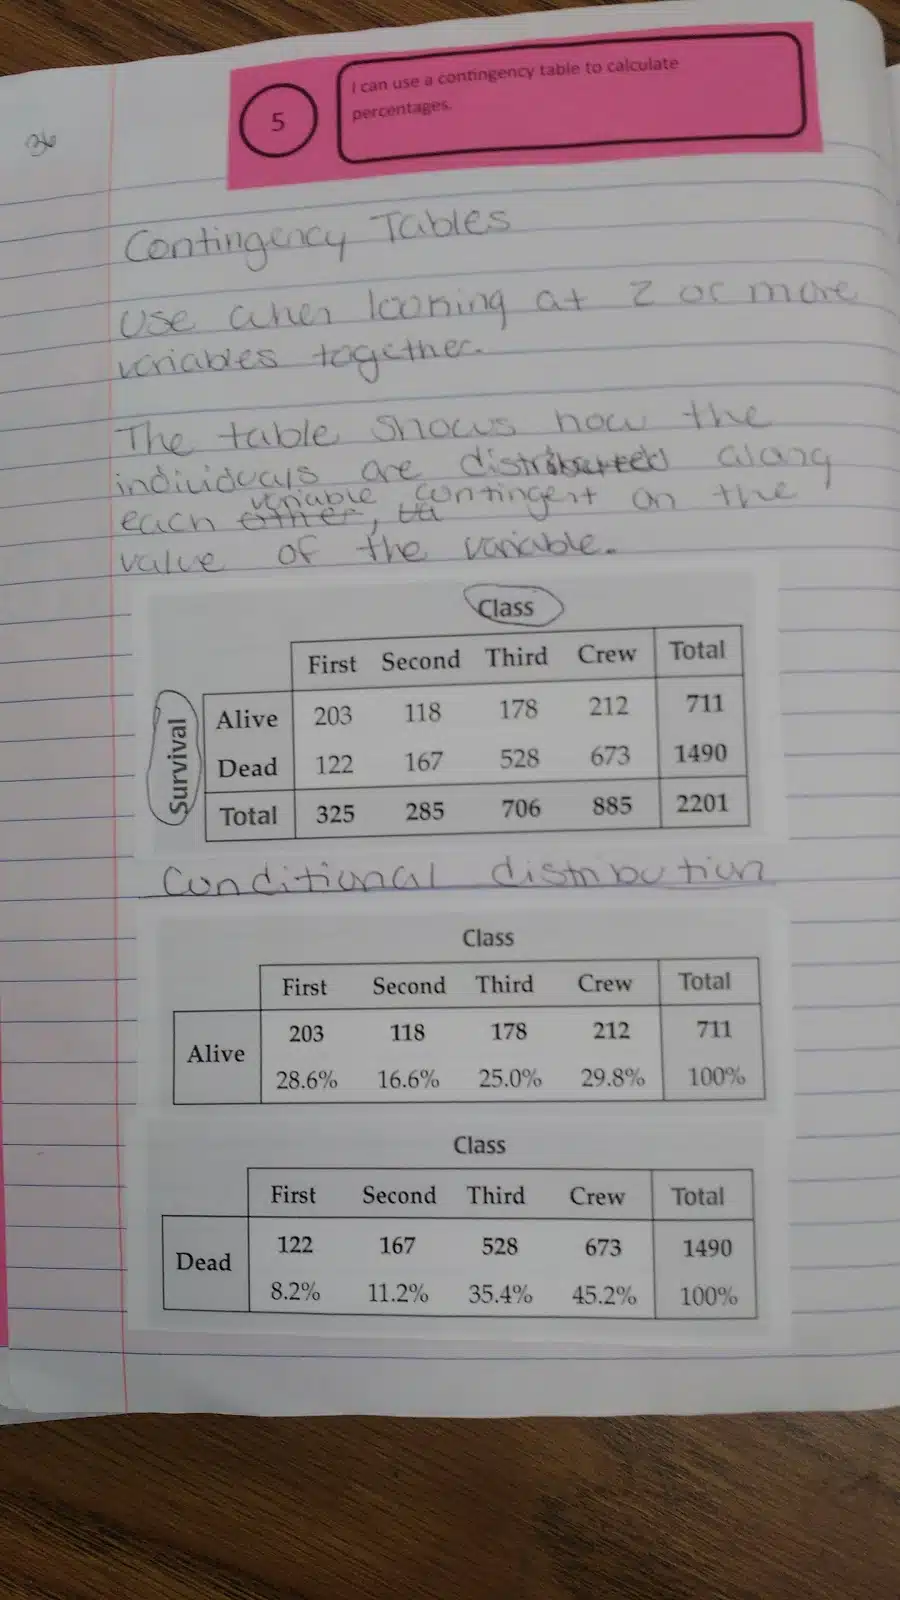 5
I can use a contingency table to calculate
percentages.
Contingency Tables
Use when looking at 2 or more
variables together.
The table shows how the
individuals are distributed along
each variable, contingent on the
value of the variable.
Class
First Second Third Crew Total
Survival
Alive 203 118 178 212 711
Dead 122 167 528 673 1490
Total 325 285 706 885 2201
Conditional distribution
Class
First Second Third Crew Total
Alive
203 118 178 212 711
28.6% 16.6% 25.0% 29.8% 100%
Class
First Second Third Crew Total
Dead
122 167 528 673 1490
8.2% 11.2% 35.4% 45.2% 100%